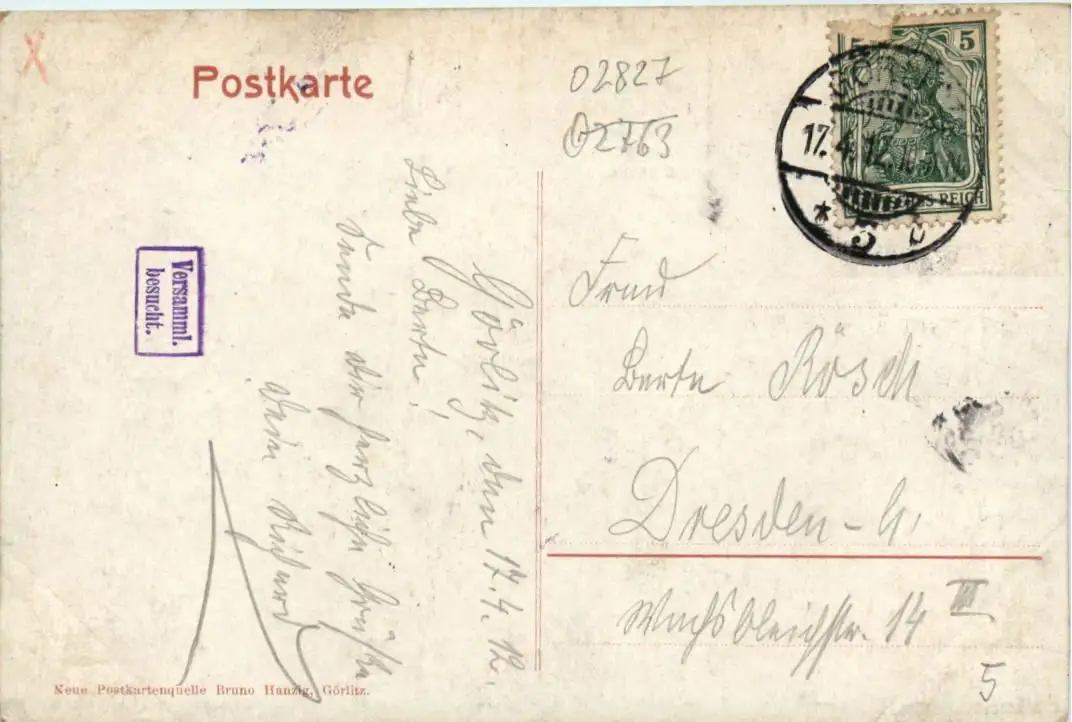 X
Postkarte
02827
02763
5
DEUTSCHES REICH
17.4.12.
* 5 c
Versamml.
besucht.
Görlitz, den 17.4.12.
Liebe Berta!
Sende dir herzliche Grüße
dein Richard
Frau
Berta Rösch
Dresden - A.
Wachsbleichstr. 14 III
5
Neue Postkartenquelle Bruno Hanzig, Görlitz.